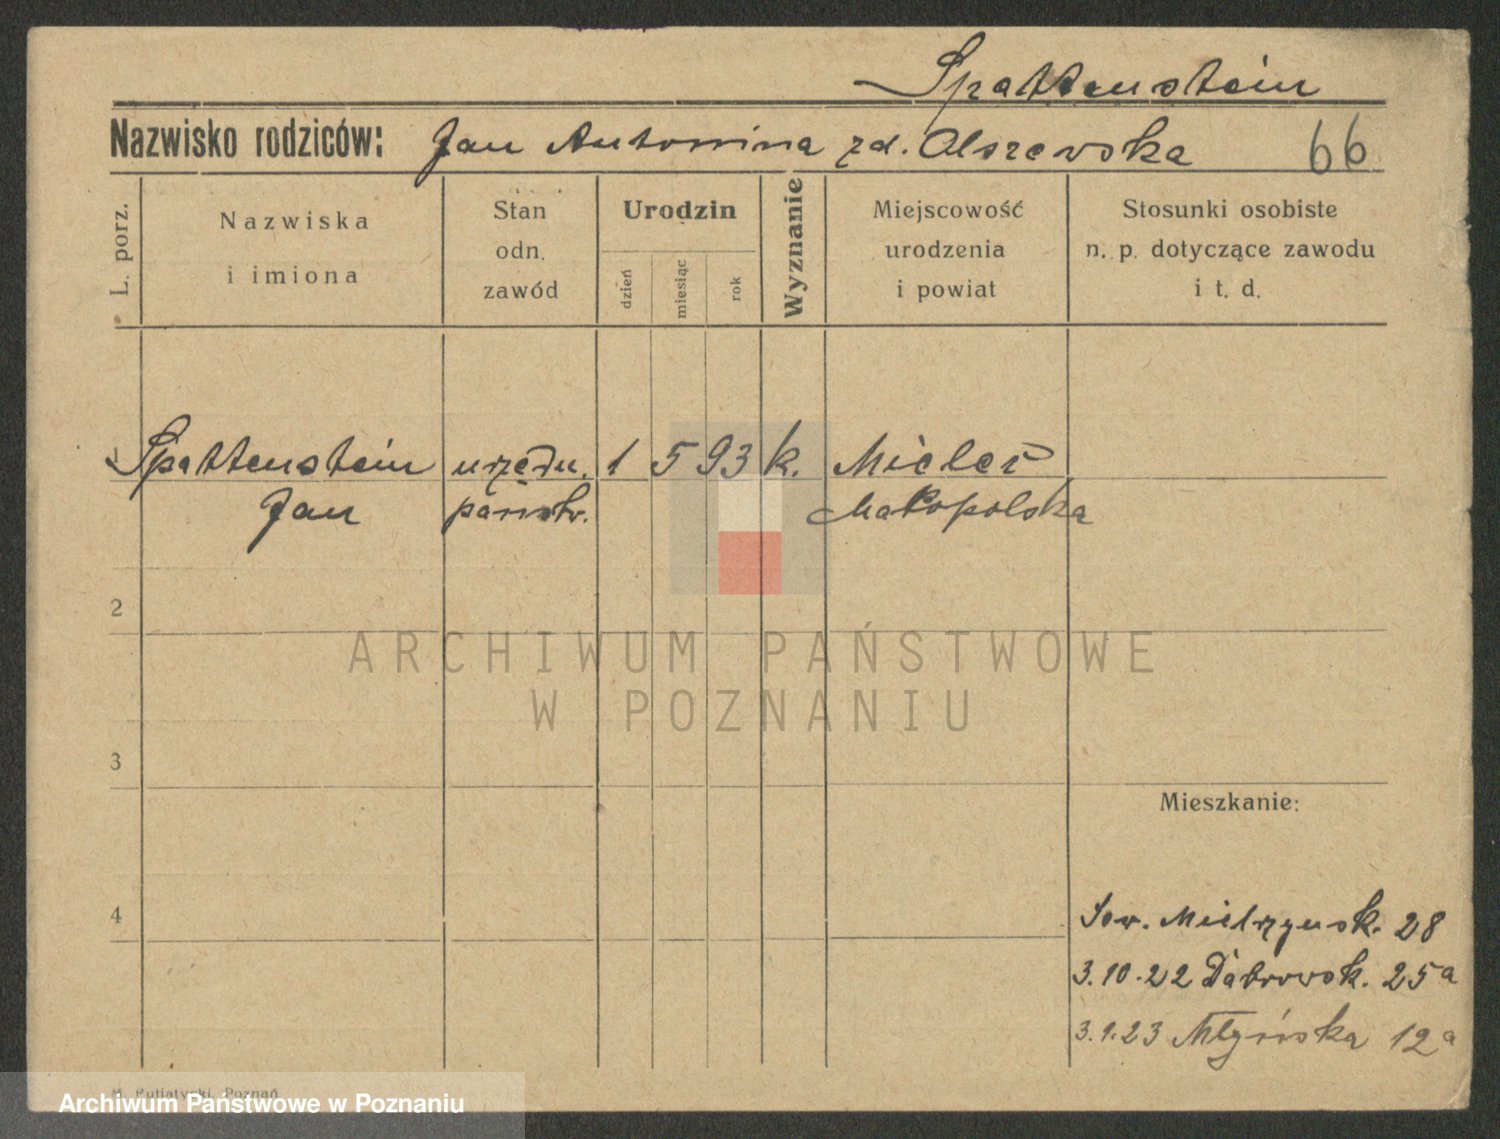 Spattenstein
Nazwisko rodziców: Jan Antonina zd. Olszewska 66
L. porz.
Nazwiska
i imiona
Stan
odn.
zawód
Urodzin
dzień
miesiąc
rok
Wyznanie
Miejscowość
urodzenia
i powiat
Stosunki osobiste
n. p. dotyczące zawodu
i t. d.
1 Spattenstein urzędn. 1 5 93 k. Mielec
Jan państw. Małopolska
2
ARCHIWUM PAŃSTWOWE
W POZNANIU
3
Mieszkanie:
4
Sew. Mielżyńsk. 28
3.10.22 Dąbrowsk. 25a
3.1.23 Młyńska 12a
M. Putiatycki, Poznań
Archiwum Państwowe w Poznaniu